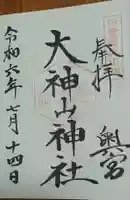 奉拝
奥宮
大神山神社
令和六年七月十四日